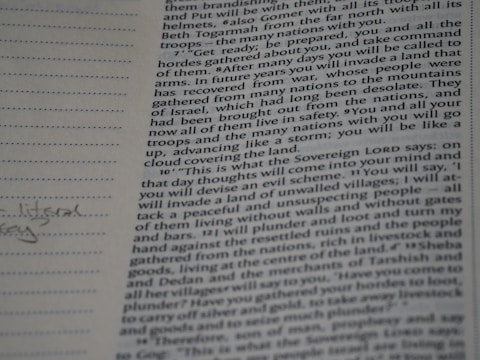 them brandishing
and Put will be with them,
helmets, 6also Gomer with all its
Beth Togarmah from the far north with all its
troops – the many nations with you.
7 " 'Get ready; be prepared, you and all the
hordes gathered about you, and take command
of them. 8After many days you will be called to
arms. In future years you will invade a land that
has recovered from war, whose people were
gathered from many nations to the mountains
of Israel, which had long been desolate. They
had been brought out from the nations, and
now all of them live in safety. 9You and all your
troops and the many nations with you will go
up, advancing like a storm; you will be like a
cloud covering the land.
10 " 'This is what the Sovereign LORD says: on
that day thoughts will come into your mind and
you will devise an evil scheme. 11You will say, 'I
will invade a land of unwalled villages; I will at-
tack a peaceful and unsuspecting people – all
of them living without walls and without gates
and bars. 12I will plunder and loot and turn my
hand against the resettled ruins and the people
gathered from the nations, rich in livestock and
goods, living at the centre of the land.' 13Sheba
and Dedan and the merchants of Tarshish and
all her villages will say to you, 'Have you come to
plunder? Have you gathered your hordes to loot,
to carry off silver and gold, to take away livestock
and goods and to seize much plunder?' "
14 'Therefore, son of man, prophesy and say
to Gog: 'This is what the Sovereign LORD says:
people Israel are living in
literal
say?